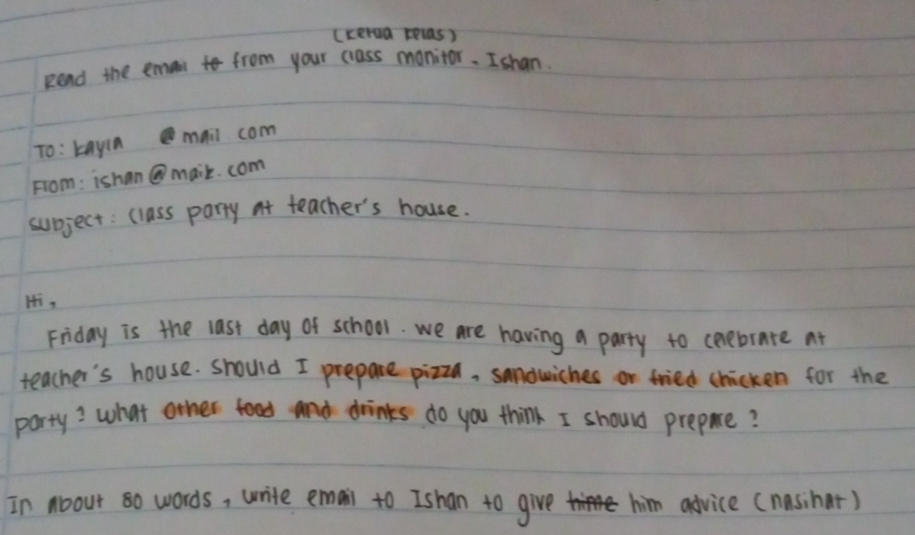 (ketua kelas)
Read the email to from your class monitor. Ishan.
To: kayla @mail com
From: ishan@mail.com
Subject: Class party at teacher's house.
Hi,
Friday is the last day of school. We are having a party to celebrate at
teacher's house. Should I prepare pizza, sandwiches or fried chicken for the
party? What other food and drinks do you think I should prepare?
In about 80 words, write email to Ishan to give him advice (nasihat)